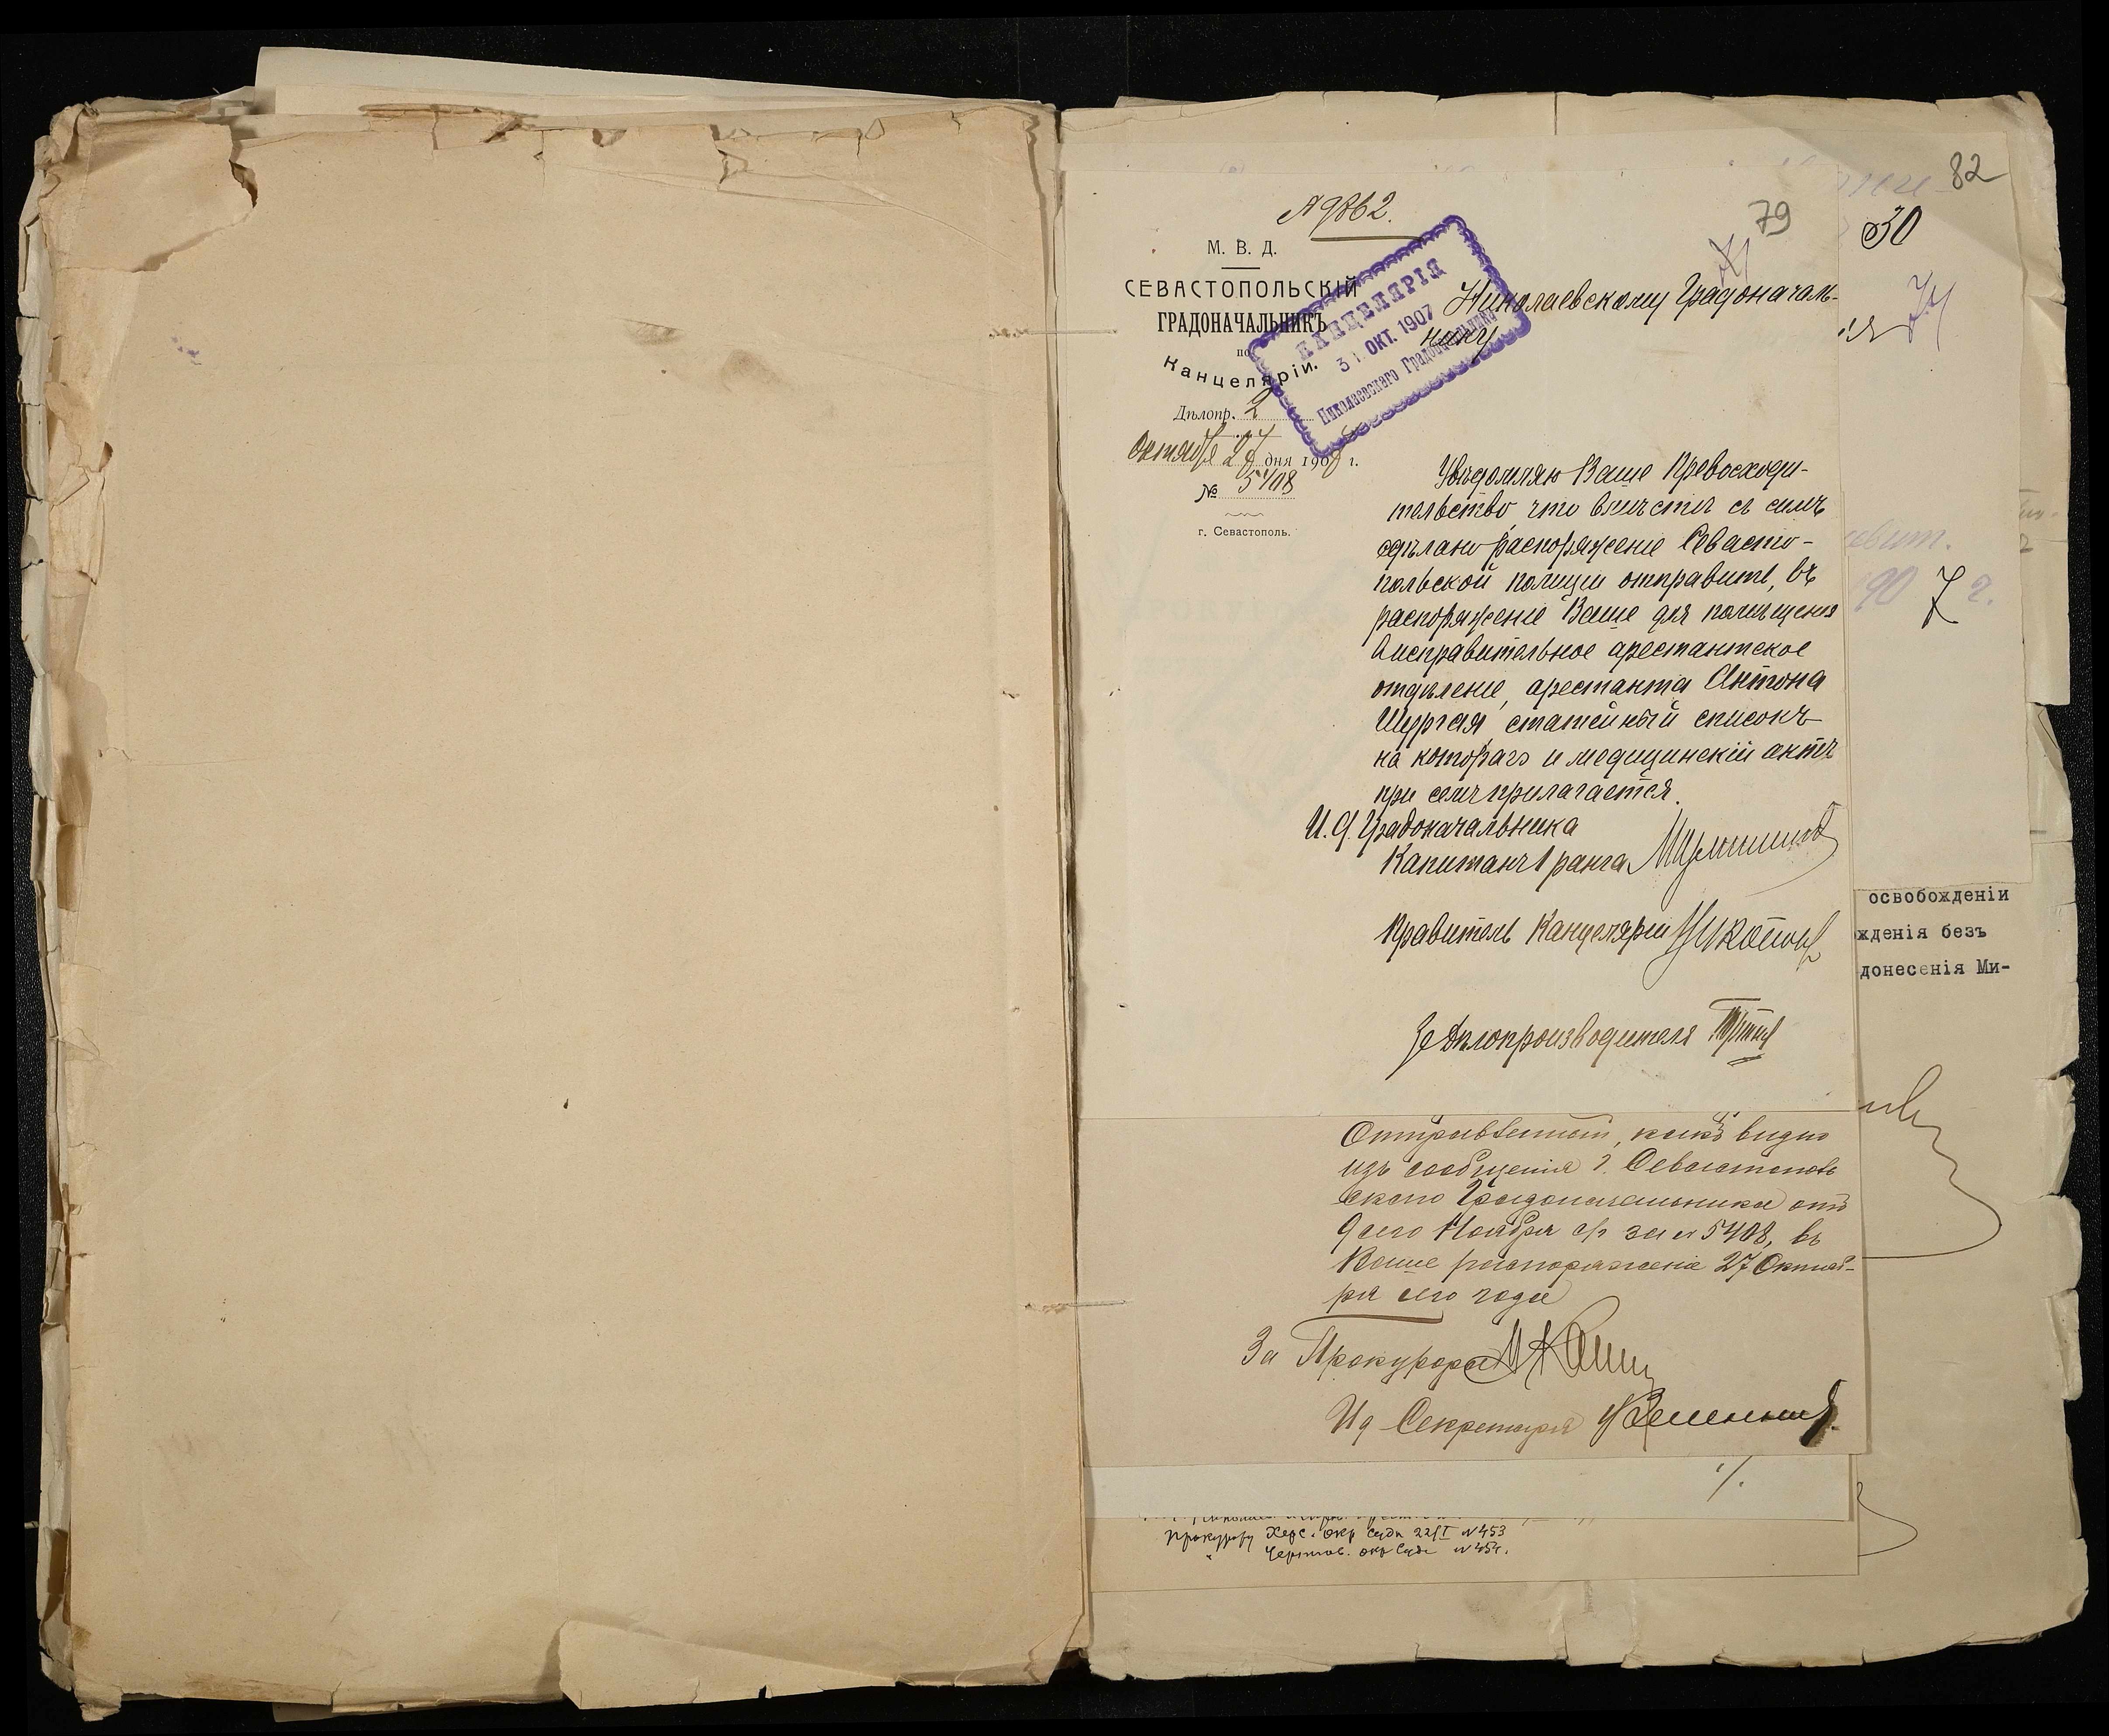 82
79
71
30
74
А 9862.
М. В. Д.
СЕВАСТОПОЛЬСКІЙ
ГРАДОНАЧАЛЬНИКЪ
по
Канцеляріи.
Дѣлопр. 2
Октября 27 дня 1907 г.
№ 5408
г. Севастополь.
КАНЦЕЛЯРІЯ
31 ОКТ. 1907
Николаевскаго Градоначальника
Николаевскому Градоначаль-
нику
Увѣдомляю Ваше Превосходи-
тельство, что вмѣстѣ съ симъ
сдѣлано распоряженіе Севасто-
польской полиціи отправить, въ
распоряженіе Ваше для помѣщенія
въ исправительное арестантское
отдѣленіе, арестанта Антона
статейный списокъ
на котораго и медицинскій актъ
при семъ прилагается.
И. д. Градоначальника
Капитанъ 1 ранга
Правитель Канцеляріи
За Дѣлопроизводителя
907 г.
освобожденіи
жденія безъ
донесенія Ми-
Отправленный, какъ видно
изъ сообщенія г. Севастополь
скаго Градоначальника отъ
9 сего Ноября с/г за № 5408, въ
Ваше распоряженіе 27 Октяб-
ря сего года
За Прокурора
Ид Секретаря
Прокурору Херс. окр суда 22/I № 453
" окр Суда № 454.